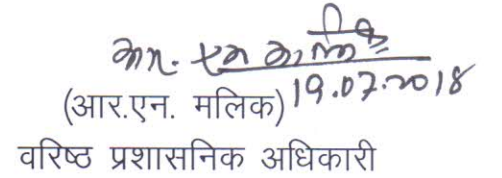 आर. एन मलिक
19.07.2018
(आर.एन. मलिक)
वरिष्ठ प्रशासनिक अधिकारी